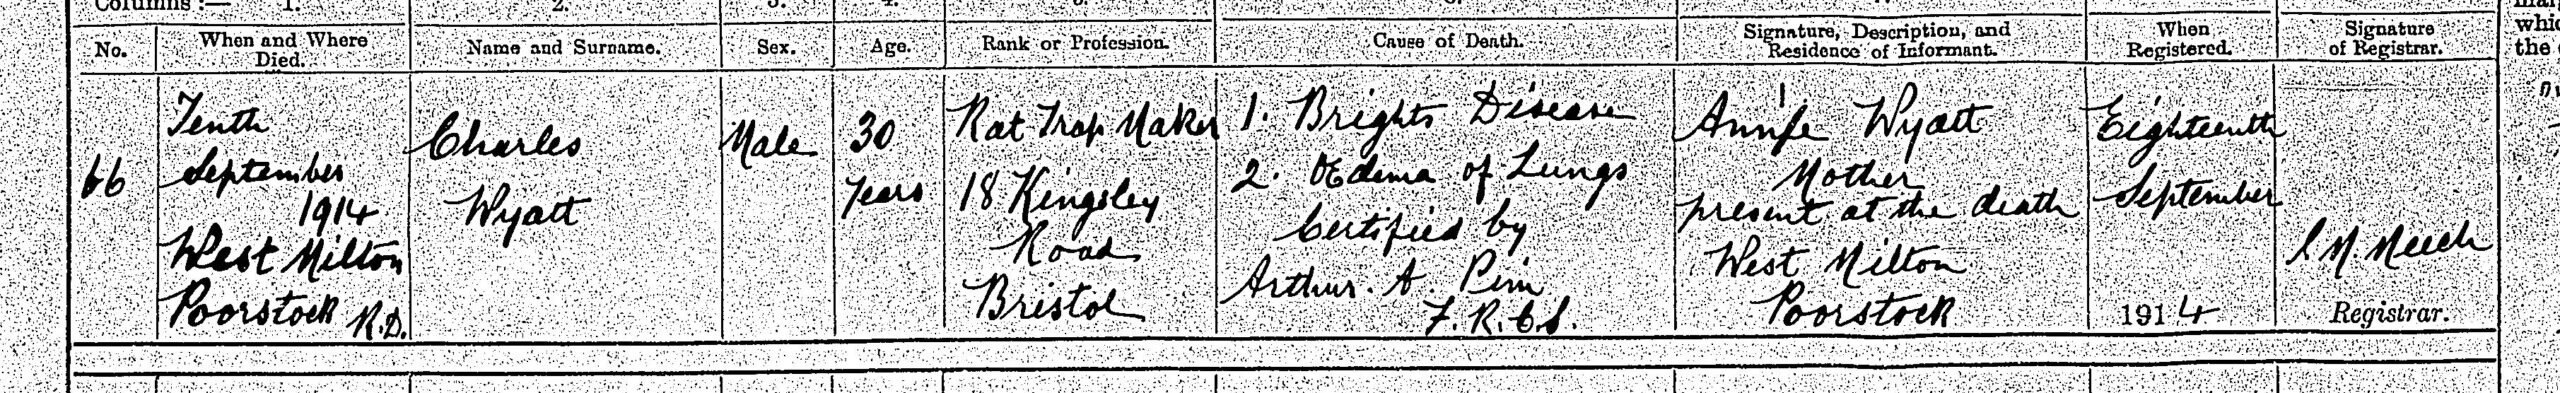 Columns :— 1. 2. 3. 4. 5. 6. 7.
No. When and Where Died. Name and Surname. Sex. Age. Rank or Profession. Cause of Death. Signature, Description, and Residence of Informant. When Registered. Signature of Registrar.
which
the
66
Tenth
September
1914
West Milton
Poorstock R.D.
Charles
Wyatt
Male
30
years
Rat Trap Maker
18 Kingsley
Road
Bristol
1. Brights Disease
2. Œdema of Lungs
Certified by
Arthur. A. Pim
F.R.C.S.
Annie Wyatt
Mother
present at the death
West Milton
Poorstock
Eighteenth
September
1914
Meech
Registrar.